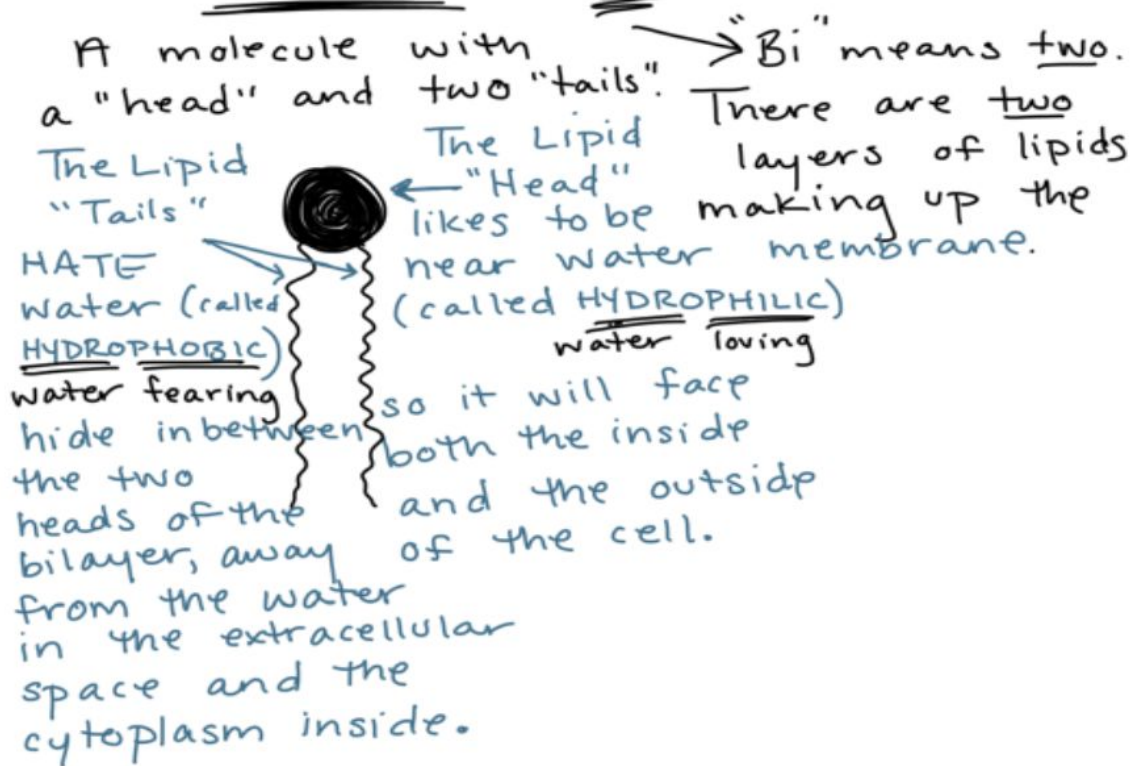 A molecule with
a "head" and two "tails".
"Bi" means two.
There are two
layers of lipids
making up the
membrane.
The Lipid
"Tails"
HATE
water (called
HYDROPHOBIC)
water fearing
hide inbetween
the two
heads of the
bilayer, away
from the water
in the extracellular
space and the
cytoplasm inside.
The Lipid
"Head"
likes to be
near water
(called HYDROPHILIC)
water loving
so it will face
both the inside
and the outside
of the cell.